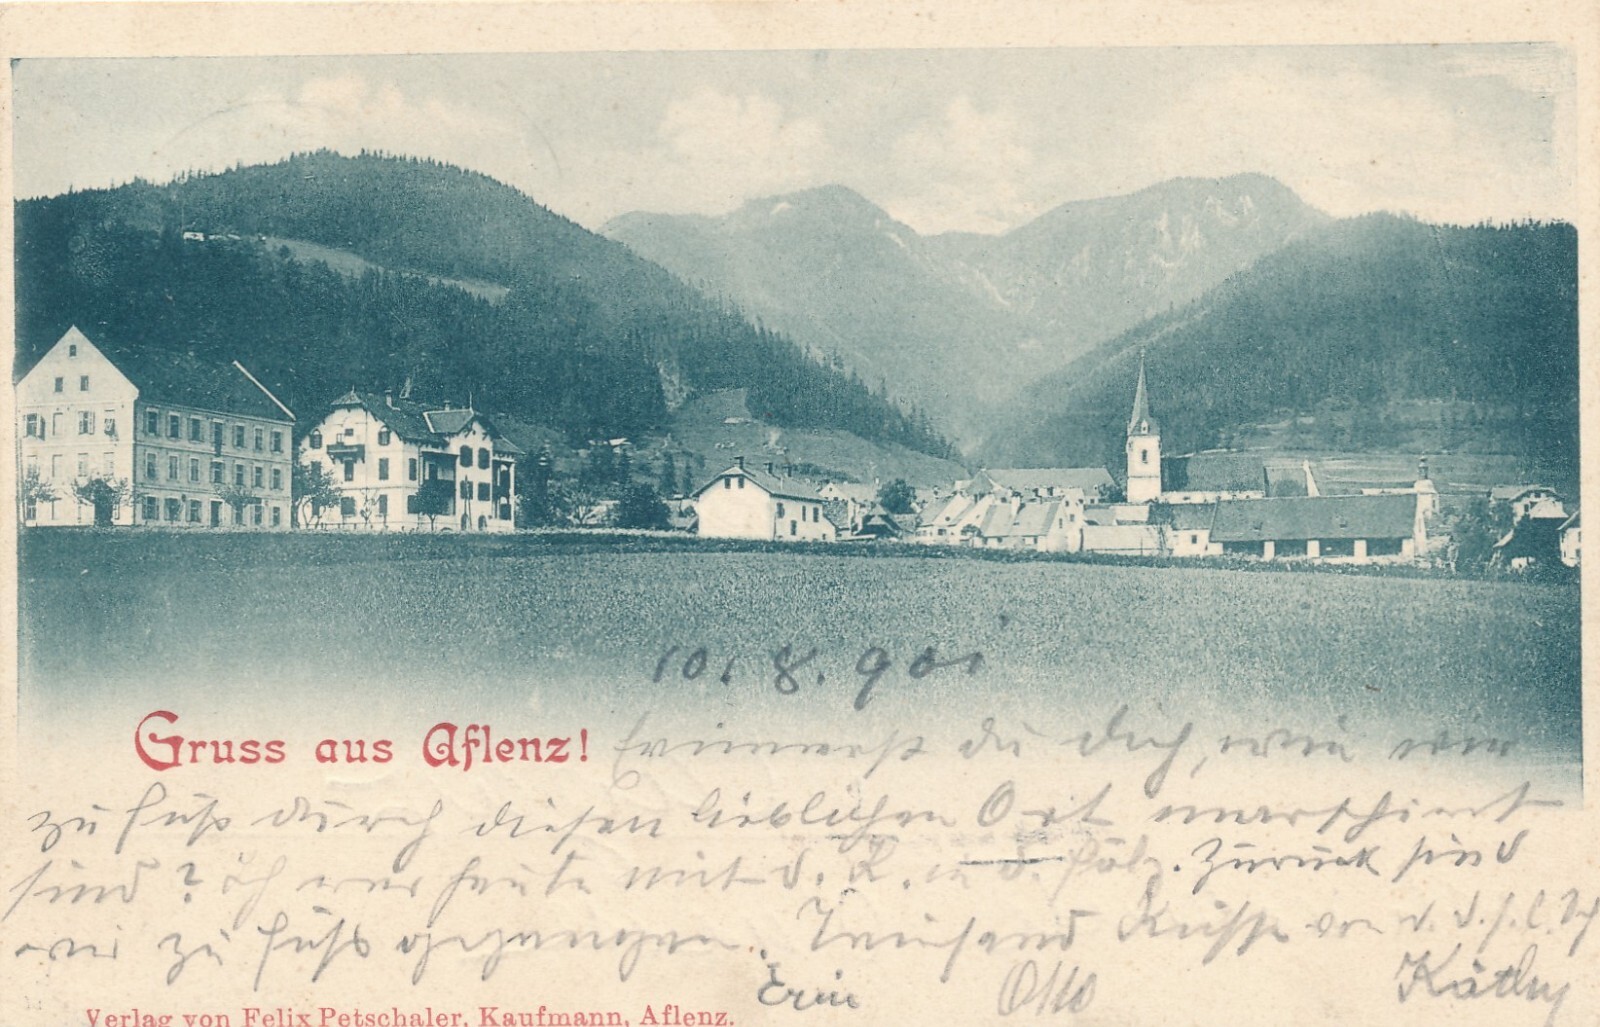 10. 8. 901
Gruss aus Aflenz! Erinnerst du dich, wie wir
zu Fuß durch diesen lieblichen Ort marschiert
sind? Ich war heute mit d. R. in d. Fölz. Zurück sind
wir zu Fuß gegangen. Tausend Küsse von d. d. s. l. Sch
Erni Otto Käthy
Verlag von Felix Petschaler, Kaufmann, Aflenz.